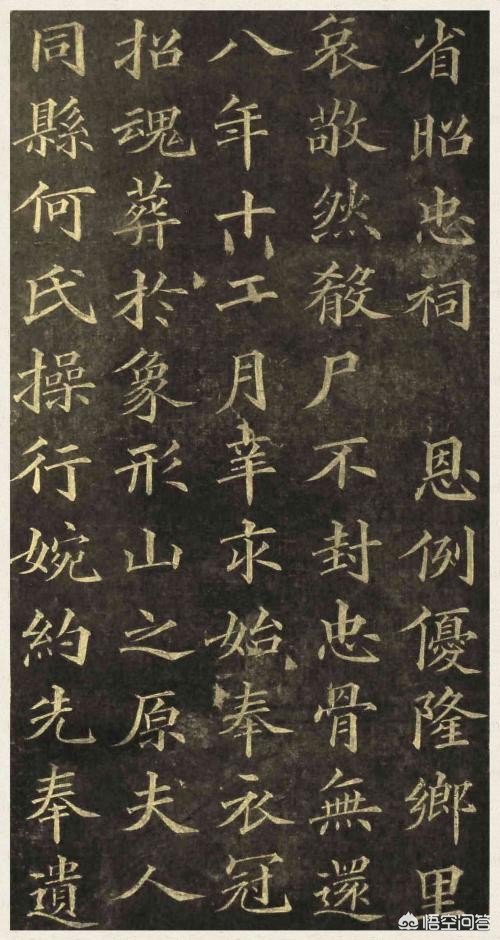 省昭忠祠 恩例優隆鄉里
哀敬然殽尸不封忠骨無還
八年十月辛始奉衣冠
招魂葬於象形山之原夫人
同縣何氏操行婉約先奉遺
悟空问答